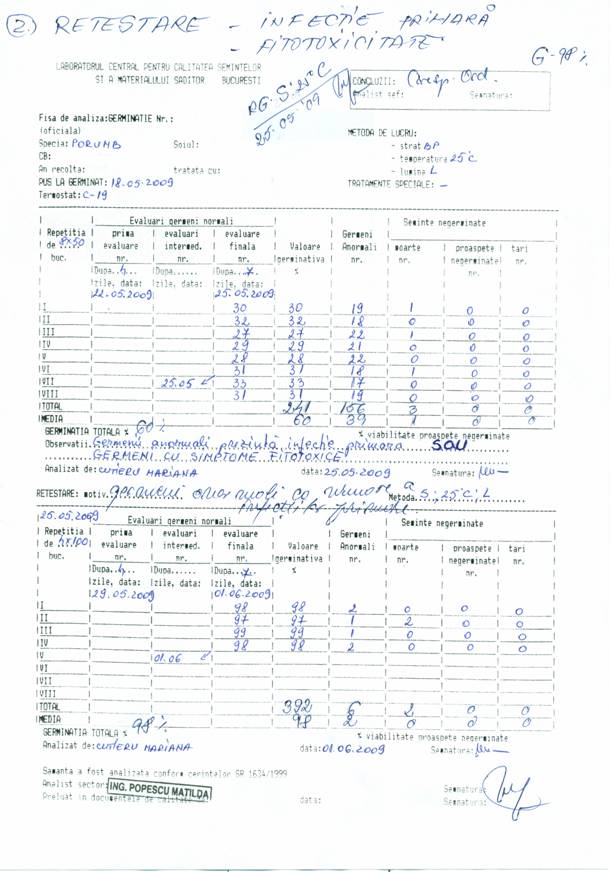 2.) RETESTARE - INFECȚIE PRIMARĂ
- FITOTOXICITATE
G-98%
LABORATORUL CENTRAL PENTRU CALITATEA SEMINTELOR
SI A MATERIALULUI SADITOR BUCURESTI
RG: S: 25°C
25.05'09
CONCLUZII: Coresp. Ord.
Analist sef: Semnatura:
Fisa de analiza:GERMINATIE Nr.:
(oficiala)
Specia: PORUMB Soiul:
CB:
An recolta: tratata cu:
PUS LA GERMINAT: 18.05.2009
Termostat: C-19
METODA DE LUCRU:
- strat BP
- temperatura 25°C
- lumina L
TRATAMENTE SPECIALE: -
Evaluari germeni normali Seminte negerminate
Repetitia prima evaluari evaluare Germeni
de 8x50 evaluare intermed. finala Valoare Anormali moarte proaspete tari
buc. nr. nr. nr. germinativa nr. nr. negerminate nr.
Dupa..4... Dupa...... Dupa..7.. % nr.
zile, data: zile, data: zile, data:
22.05.2009 25.05.2009
I 30 30 19 1 0 0
II 32 32 18 0 0 0
III 27 27 22 1 0 0
IV 29 29 21 0 0 0
V 28 28 22 0 0 0
VI 31 31 18 1 0 0
VII 25.05 33 33 17 0 0 0
VIII 31 31 19 0 0 0
TOTAL 241 156 3 0 0
MEDIA 60 39 1 0 0
GERMINATIA TOTALA % 60% % viabilitate proaspete negerminate
Observatii: Germeni anormali prezintă infecție primara SAU
GERMENI CU SIMPTOME FITOTOXICE
Analizat de: CUTERU MARIANA data: 25.05.2009 Semnatura:
RETESTARE: motiv. germeni anormali ca urmare a Metoda. S; 25°C; L
infecțiilor primare
25.05.2009 Evaluari germeni normali Seminte negerminate
Repetitia prima evaluari evaluare Germeni
de 4x100 evaluare intermed. finala Valoare Anormali moarte proaspete tari
buc. nr. nr. nr. germinativa nr. nr. negerminate nr.
Dupa..4... Dupa...... Dupa..7.. % nr.
zile, data: zile, data: zile, data:
29.05.2009 01.06.2009
I 98 98 2 0 0 0
II 97 97 1 2 0 0
III 99 99 1 0 0 0
IV 98 98 2 0 0 0
V 01.06
VI
VII
VIII
TOTAL 392 6 2 0 0
MEDIA 98 2 0 0 0
GERMINATIA TOTALA % 98% % viabilitate proaspete negerminate
Analizat de: CUTERU MARIANA data: 01.06.2009 Semnatura:
Samanta a fost analizata conform cerintelor SR 1634/1999
Analist sector: ING. POPESCU MATILDA Semnatura:
Preluat in documentele de calitate data: Semnatura: